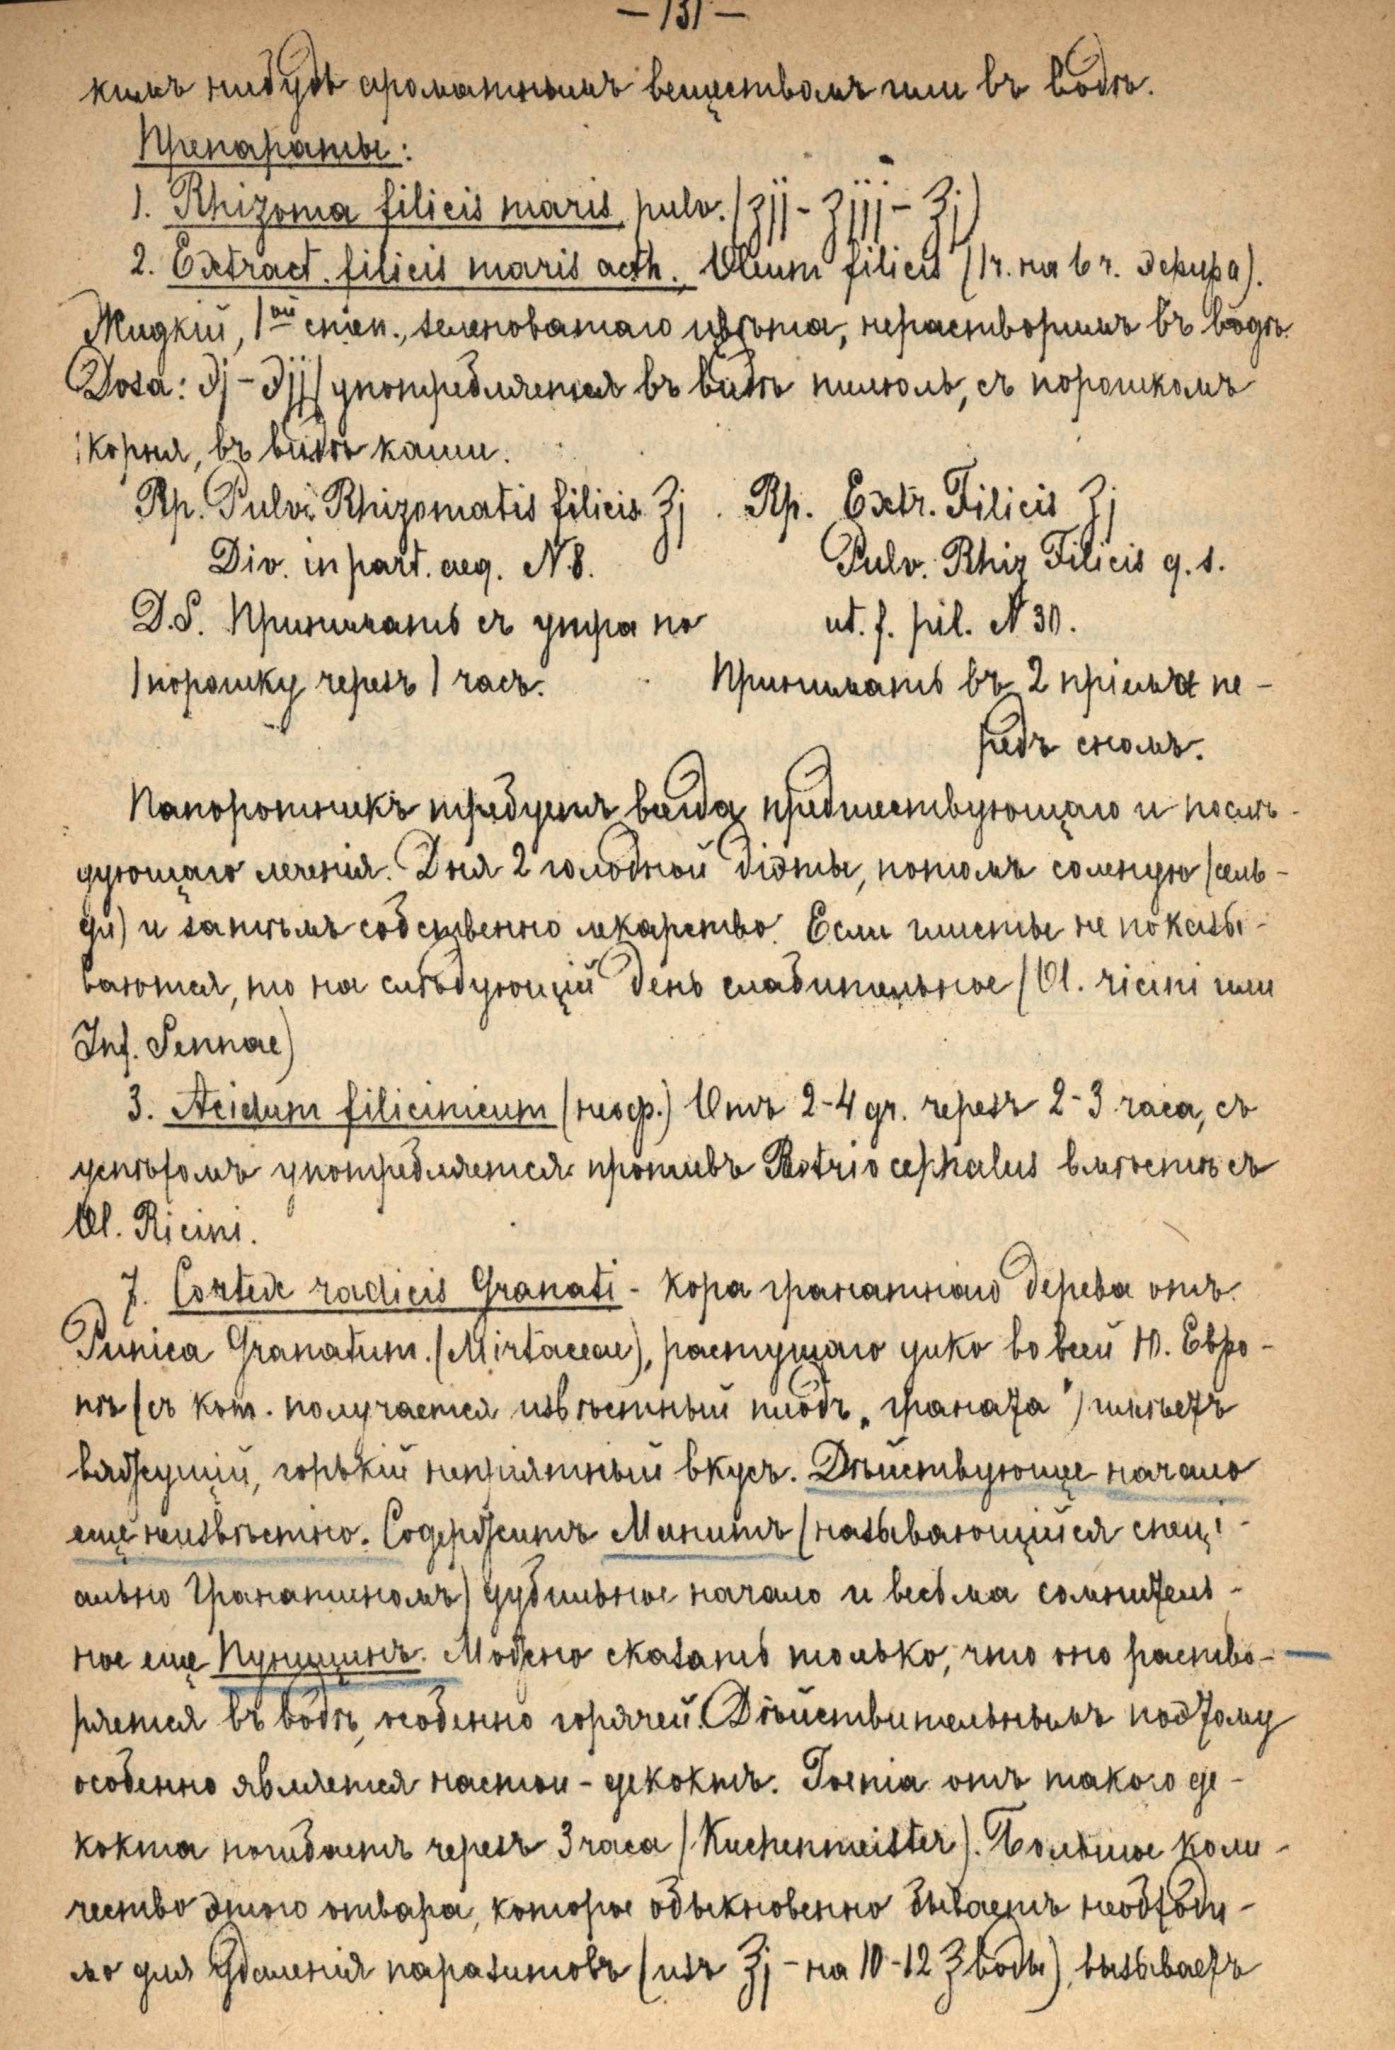 — 131 —
кимъ нибудь ароматнымъ веществомъ или въ водѣ.
Препараты:
1. Rhizoma filicis maris pulv. (ʒjj – ʒjjj – ℥j)
2. Extract. filicis maris aeth., Oleum filicis (1 ч. на 6 ч. эфира).
Жидкій, 1ой степ., зеленоватаго цвѣта, нерастворимъ въ водѣ.
Dosa: ℈j – ℈jj употребляется въ видѣ пилюль, съ порошкомъ
корня, въ видѣ каши.
Rp. Pulv. Rhizomatis filicis ℥j. Rp. Extr. Filicis ʒj
Div. in part. aeq. N. 8. Pulv. Rhiz Filicis q. s.
D.S. Принимать съ утра по ut. f. pil. N 30.
1 порошку черезъ 1 часъ. Принимать въ 2 пріема пе-
редъ сномъ.
Папоротникъ требуетъ всегда предшествующаго и послѣ-
дующаго леченія. Дня 2 голодной діэты, потомъ соленую (сель-
ди) и затѣмъ собственно лекарство. Если глисты не показы-
ваются, то на слѣдующій день слабительное (Ol. ricini или
Inf. Sennae)
3. Acidum filicinicum (неоф.) Отъ 2-4 gr. черезъ 2-3 часа, съ
успѣхомъ употребляется противъ Botriocephalus вмѣстѣ съ
Ol. Ricini.
7. Cortex radicis Granati - кора гранатнаго дерева отъ
Punica Granatum. (Mirtaceae), растущаго дико во всей Ю. Евро-
пѣ (съ кот. получается извѣстный плодъ „граната") имѣетъ
вяжущій, горькій непріятный вкусъ. Дѣйствующее начало
еще неизвѣстно. Содержитъ Манитъ (называющійся специ-
ально Гранатиномъ) дубильное начало и весьма сомнитель-
ное еще Пуницинъ. Можно сказать только, что оно раство-
ряется въ водѣ, особенно горячей. Дѣйствительнымъ поэтому
особенно является настои - декоктъ. Taenia отъ такого де-
кокта погибаетъ черезъ 3 часа (Kuchenmeister). Большое коли-
чество этого отвара, которое обыкновенно бываетъ необходи-
мо для удаленія паразитовъ (изъ ℥j – на 10-12 ℥ воды), вызываетъ